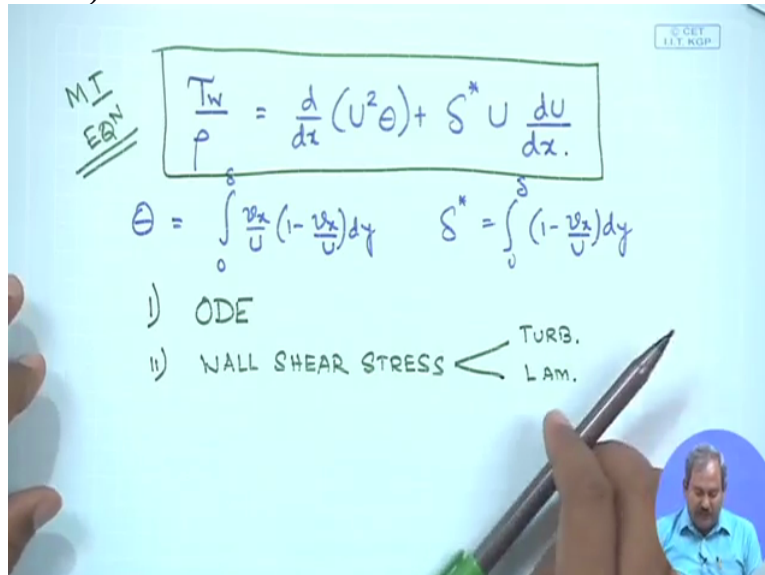 © CET
I.I.T. KGP
MI
EQᴺ
τw/ρ = d/dx (U²θ) + δ* U dU/dx.
θ = ∫₀^δ vx/U (1 - vx/U) dy δ* = ∫₀^δ (1 - vx/U) dy
I) ODE
II) WALL SHEAR STRESS
TURB.
LAM.